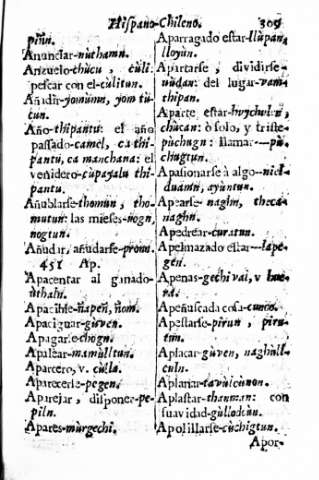 Hispano-Chileno. 309
piñn.
Anunciar-nùthamn.
Anzuelo-thùcu, cùli.
pescar con el-cùlitun.
Añadir-jomùmn, jom tù-
cun.
Año-thipantu: el año
passado-camel, ca thi-
pantu, ca manchana: el
venidero-cùpayalu thi-
pantu.
Añublarse-thomùn, tho-
mutun: las mieses-ñogn,
nogtun.
Añudar, añudarse-pronu.
451 Ap.
Apacentar al ganado-
ùthaln.
Apacible-ñapeñ, ñom.
Apaciguar-gùven.
Apagarle-chogn.
Apalear-mamùlltun.
Aparcero, v. cùlla.
Aparecerse-pegen.
Aparejar, disponer-pe-
piln.
Apares-mùrgechi.
Aparragado estar-llùpan,
lloyùn.
Apartarse, dividirse-
uùdan: del lugar-vam-
thipan.
Aparte estar-huychulen,
chùcan: ò solo, y triste-
pùchugn: llamar-pù-
chugtun.
Apasionarse à algo-niel-
duamn, ayùntun.
Apearle-naghn, theca-
naghn.
Apedrear-curatun.
Apelmazado estar-lape-
gen.
Apenas-gechi vai, v
Apeñuscada cosa-cunco.
Apestarse-pirun, piru-
tun.
Aplacar-gùven, naghùll-
culn.
Aplanar-tavùlcunon.
Aplastar-thanman: con
suavidad-gùllodcun.
Apolillarse-cùchigtun.
Apor-